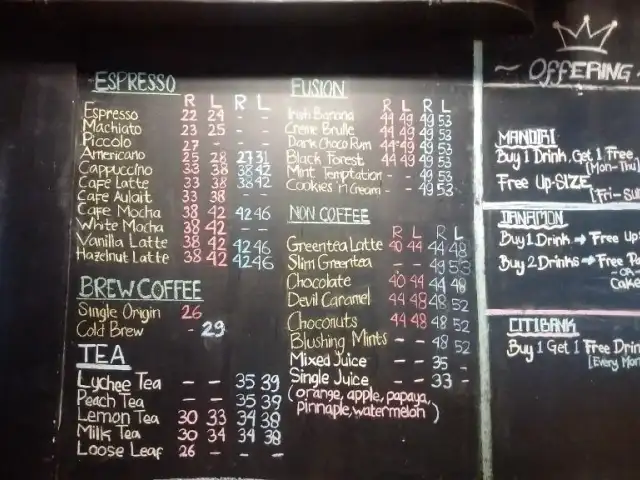 ESPRESSO
R L R L
Espresso 22 24 - -
Machiato 23 25 - -
Piccolo 27 - - -
Americano 25 28 27 31
Cappuccino 33 38 38 42
Cafe Latte 33 38 38 42
Cafe Aulait 33 38 - -
Cafe Mocha 38 42 42 46
White Mocha 38 42 - -
Vanilla Latte 38 42 42 46
Hazelnut Latte 38 42 42 46
BREW COFFEE
Single Origin 26
Cold Brew - 29
TEA
Lychee Tea - - 35 39
Peach Tea - - 35 39
Lemon Tea 30 33 34 38
Milk Tea 30 34 34 38
Loose Leaf 26 - - -
FUSION
R L R L
Irish Banana 44 49 49 53
Creme Brulle 44 49 49 53
Dark Choco Rum 44 49 49 53
Black Forest 44 49 49 53
Mint Temptation - - 49 53
Cookies 'n Cream - - 49 53
NON COFFEE
R L R L
Greentea Latte 40 44 44 48
Slim Greentea - - 49 53
Chocolate 40 44 44 48
Devil Caramel 44 48 48 52
Choconuts 44 48 48 52
Blushing Mints - - 48 52
Mixed Juice - - 35 -
Single Juice - - 33 -
(orange, apple, papaya,
pinnaple, watermelon)
~ OFFERING
MANDIRI
Buy 1 Drink, Get 1 Free,
[Mon-Thu]
Free Up-SIZE
DANAMON
Buy 1 Drink → Free Up
Buy 2 Drinks → Free
OR
Cake
CITIBANK
Buy 1 Get 1 Free Drin
[Every Mon